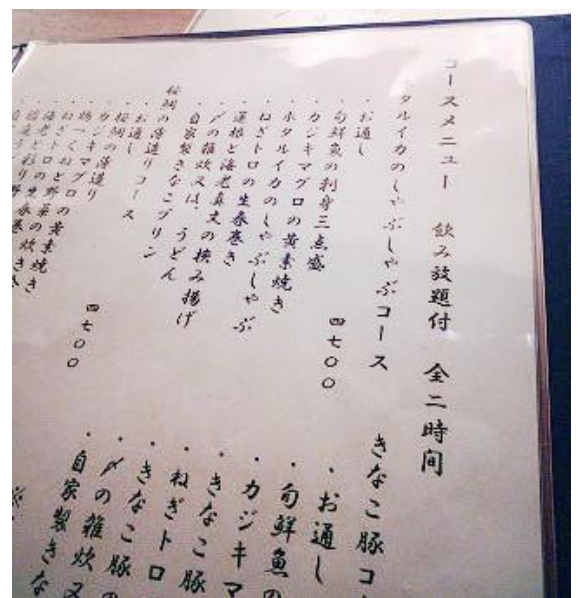 コースメニュー 飲み放題付 全二時間
ホタルイカのしゃぶしゃぶコース
四七〇〇
・お通し
・旬鮮魚の刺身三点盛
・カジキマグロの黄素焼き
・ホタルイカのしゃぶしゃぶ
・ねぎトロの生春巻き
・蓮根と海老真丈の挟み揚げ
・〆の雑炊又は、うどん
・自家製きなこプリン
桜鯛の薄造りコース
四七〇〇
・お通し
・桜鯛の薄造り
・カジキマグロの黄素焼き
・鴨つくねと野菜の炊き
・ねぎトロの生春巻き
きなこ豚コ
・お通し
・旬鮮魚の
・カジキマ
・きなこ豚
・ねぎトロ
・きなこ豚の
・〆の雑炊又
・自家製きな